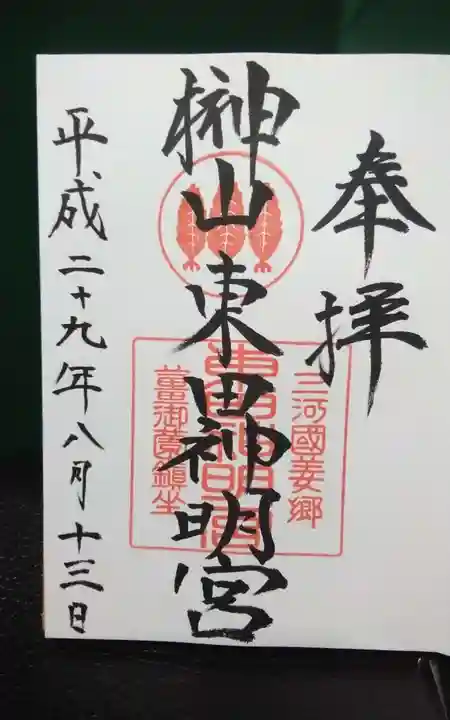 奉拝
三河國姜郷
榊山東田神明宮
東田神明宮
薑御薗鎮坐
平成二十九年八月十三日